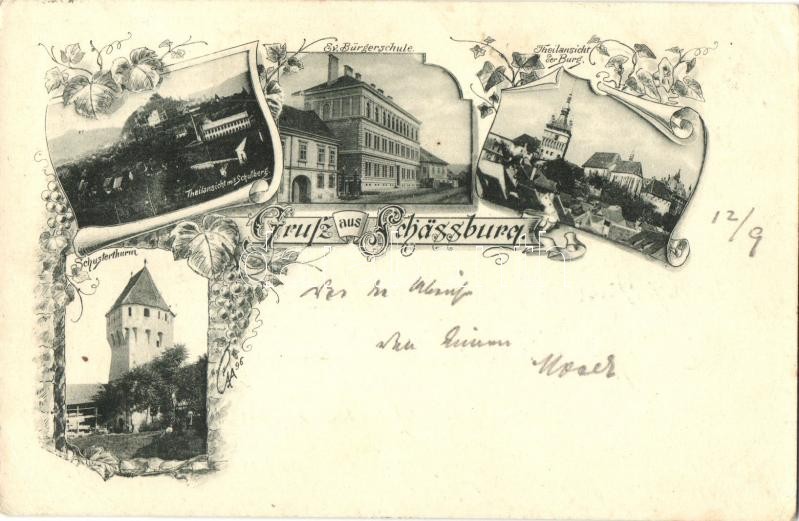 Ev. Bürgerschule.
Theilansicht
der Burg.
Theilansicht mit Schulberg.
Gruß aus Schässburg.
Schusterthurm
12/9
Moser
96